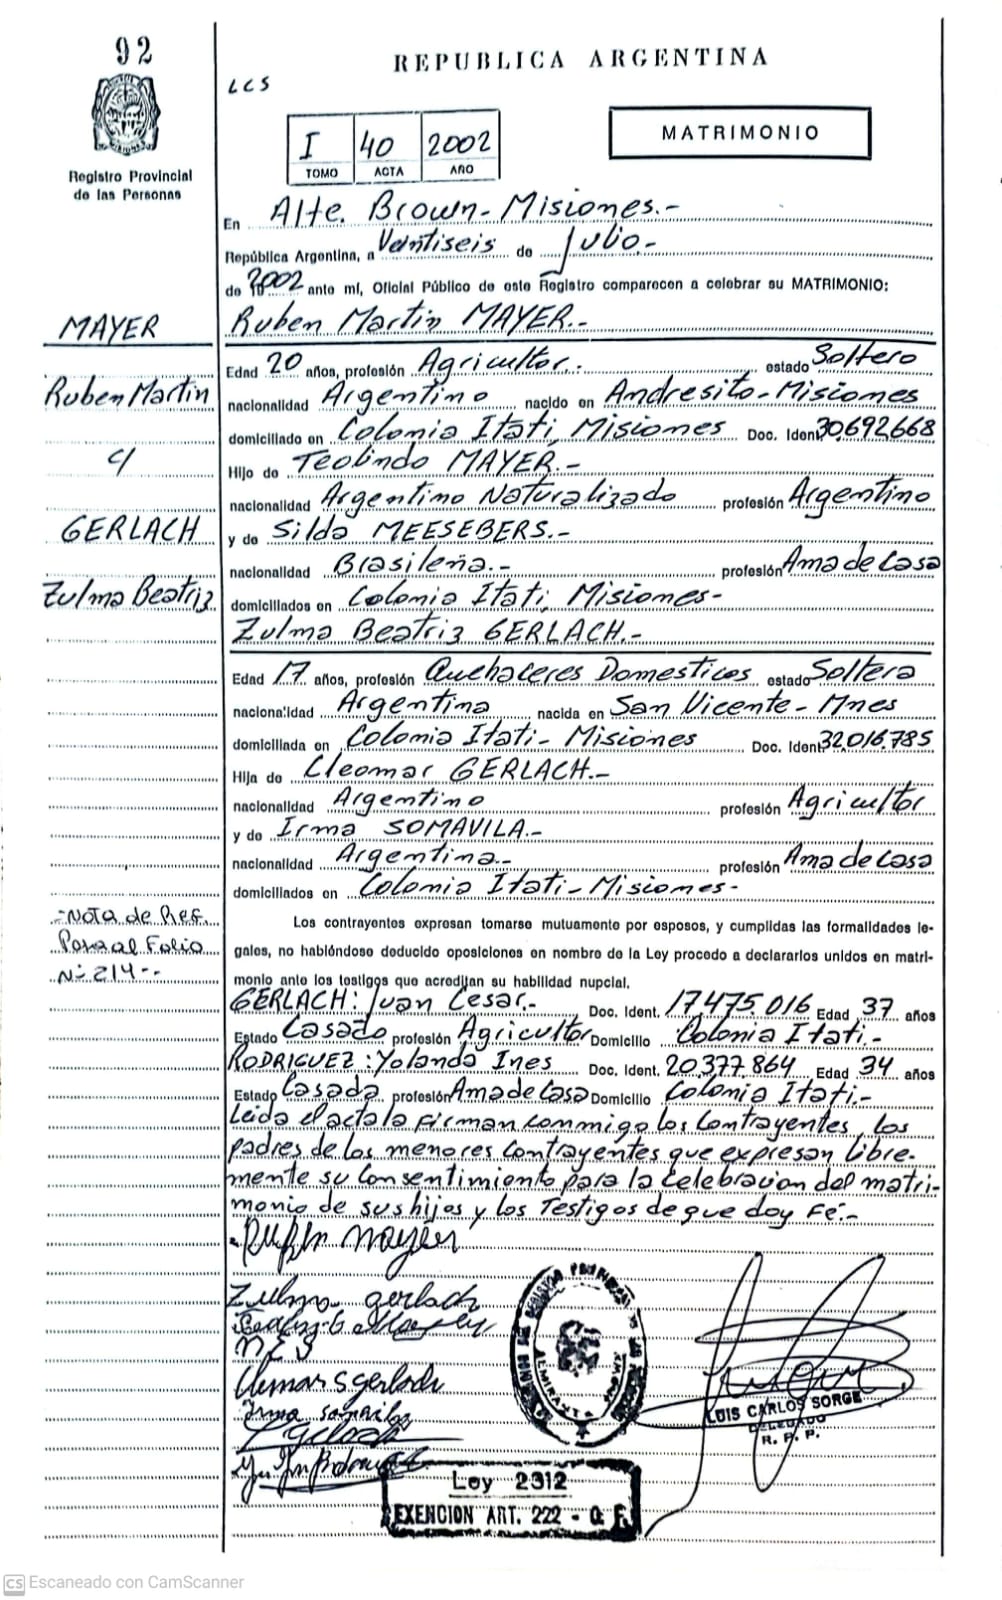 92
REPUBLICA ARGENTINA
LCS
Registro Provincial
de las Personas
I 40 2002
TOMO ACTA AÑO
MATRIMONIO
En Alte. Brown - Misiones.-
República Argentina, a Veintiseis de Julio.-
de 2002 ante mí, Oficial Público de este Registro comparecen a celebrar su MATRIMONIO:
MAYER
Ruben Martin
c/
GERLACH
Zulma Beatriz
Ruben Martin MAYER.-
Edad 20 años, profesión Agricultor.- estado Soltero
nacionalidad Argentino nacido en Andresito - Misiones
domiciliado en Colonia Itati, Misiones Doc. Ident. 30692668
Hijo de Teolindo MAYER.-
nacionalidad Argentino Naturalizado profesión Argentino
y de Silda MEESEBERS.-
nacionalidad Brasileña.- profesión Ama de Casa
domiciliados en Colonia Itati, Misiones-
Zulma Beatriz GERLACH.-
Edad 17 años, profesión Quehaceres Domesticos estado Soltera
nacionalidad Argentina nacida en San Vicente - Mnes
domiciliada en Colonia Itati - Misiones Doc. Ident. 32.016.785
Hija de Cleomar GERLACH.-
nacionalidad Argentino profesión Agricultor
y de Irma SOMAVILA.-
nacionalidad Argentina.- profesión Ama de Casa
domiciliados en Colonia Itati - Misiones-
-Nota de Ref.
Pasa al Folio
Nº 214--
Los contrayentes expresan tomarse mutuamente por esposos, y cumplidas las formalidades le-
gales, no habiéndose deducido oposiciones en nombre de la Ley procedo a declararlos unidos en matri-
monio ante los testigos que acreditan su habilidad nupcial.
GERLACH: Juan Cesar.- Doc. Ident. 17475.016 Edad 37 años
Estado Casado profesión Agricultor Domicilio Colonia Itati.-
RODRIGUEZ: Yolanda Ines Doc. Ident. 20.377.864 Edad 34 años
Estado Casada profesión Ama de Casa Domicilio Colonia Itati.-
Leida el acta la firman conmigo los Contrayentes, los
padres de los menores contrayentes que expresan libre-
mente su consentimiento para la celebracion del matri-
monio de sus hijos y los Testigos de que doy Fé.-
Zulma gerlach
Irma
ALMIRANTE
LUIS CARLOS SORGE
DELEGADO
R. P. P.
Ley 2312
EXENCION ART. 222 -
CS Escaneado con CamScanner